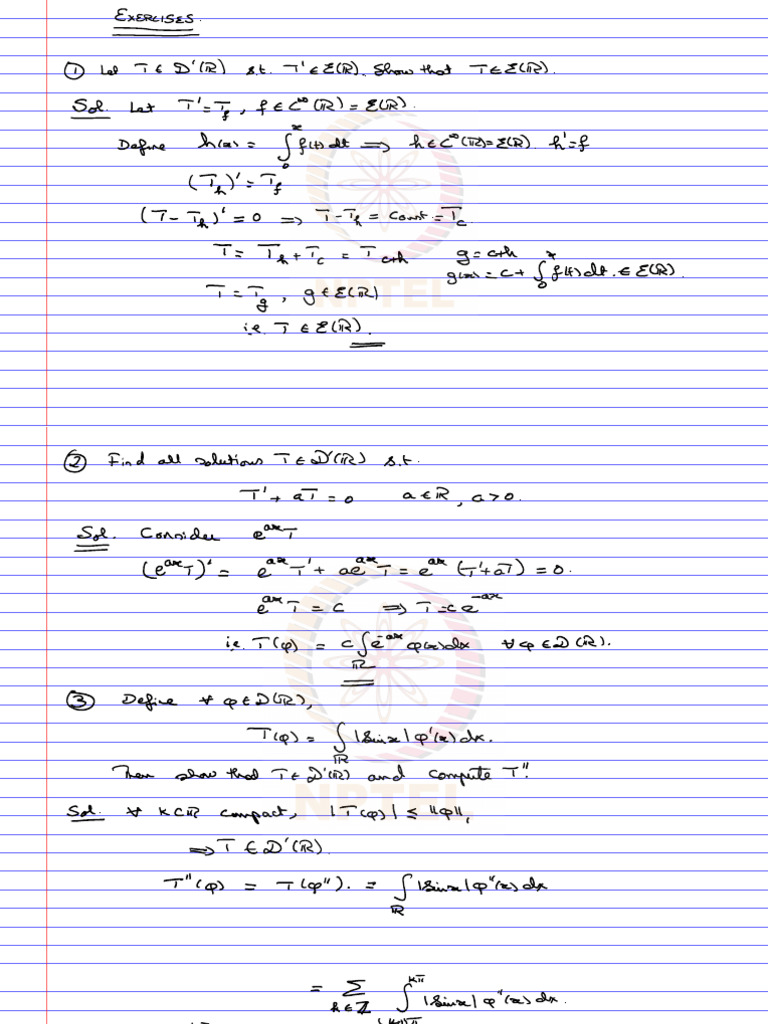 EXERCISES.
① Let T ∈ D'(ℝ) s.t. T' ∈ Ɛ(ℝ). Show that T ∈ Ɛ(ℝ).
Sol. Let T' = T_f, f ∈ C^∞(ℝ) = Ɛ(ℝ).
Define h(x) = ∫_0^x f(t) dt ⟹ h ∈ C^∞(ℝ) = Ɛ(ℝ). h' = f
(T_h)' = T_f
(T - T_h)' = 0 ⟹ T - T_h = const = T_c
T = T_h + T_c = T_{c+h} g = c+h
g(x) = c + ∫_0^x f(t) dt. ∈ Ɛ(ℝ).
T = T_g, g ∈ Ɛ(ℝ)
i.e. T ∈ Ɛ(ℝ).
NPTEL
② Find all solutions T ∈ D'(ℝ) s.t.
T' + aT = 0 a ∈ ℝ, a > 0.
Sol. Consider e^{ax}T
(e^{ax}T)' = e^{ax}T' + ae^{ax}T = e^{ax}(T' + aT) = 0.
e^{ax}T = c ⟹ T = ce^{-ax}
i.e. T(φ) = c∫_ℝ e^{-ax} φ(x) dx ∀ φ ∈ D(ℝ).
③ Define ∀ φ ∈ D(ℝ),
T(φ) = ∫_ℝ |sin x| φ'(x) dx.
Then show that T ∈ D'(ℝ) and compute T''.
NPTEL
Sol. ∀ K ⊂ ℝ compact, |T(φ)| ≤ "φ"_1
⟹ T ∈ D'(ℝ).
T''(φ) = T(φ''). = ∫_ℝ |sin x| φ''(x) dx
= Σ_{k∈ℤ} ∫_{(k-1)π}^{kπ} |sin x| φ''(x) dx.